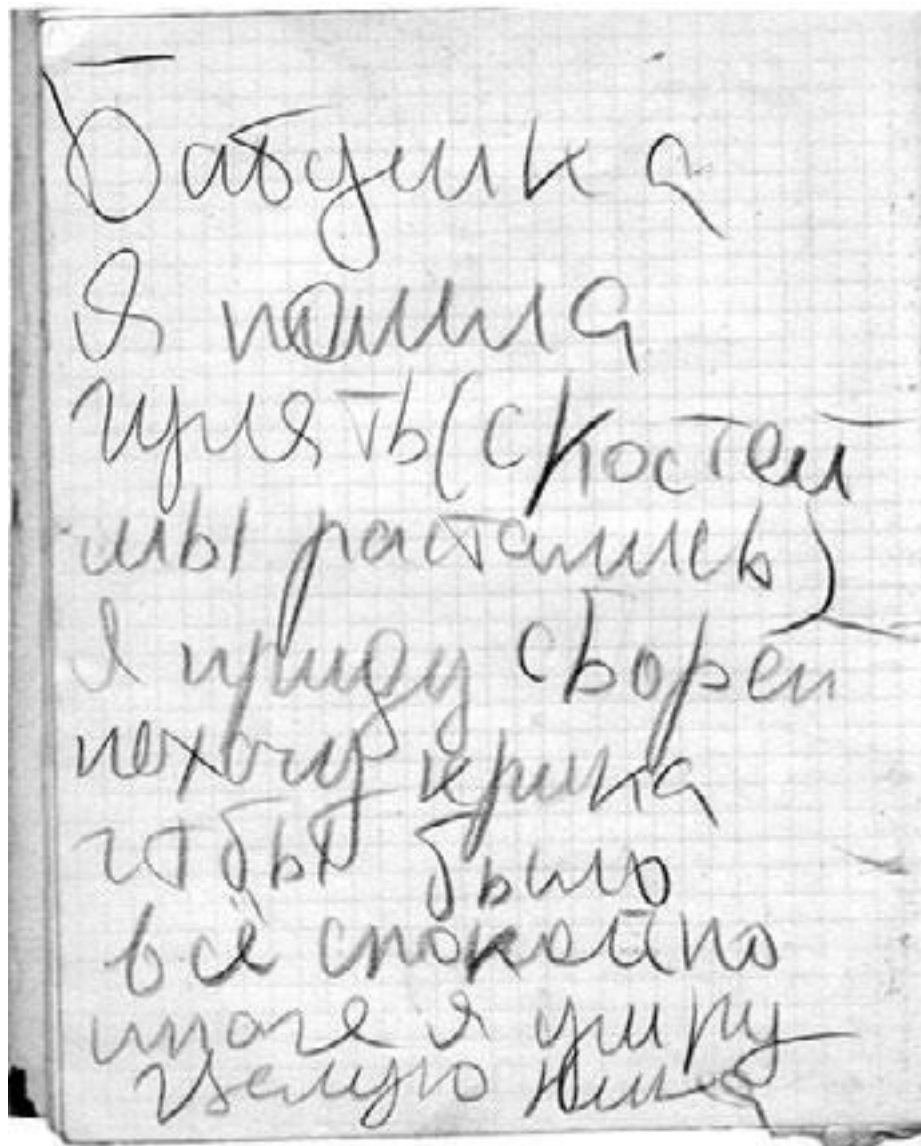 Бабушка
Я пошла
гулять (с Костей
мы растались)
я приду скорей
нехочу крика
чтобы было
всё спокойно
иначе я умру
целую Ника